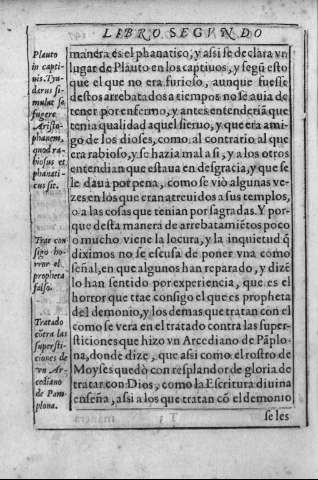 LIBRO SEGVNDO
Plauto
in capti-
uis. Tyn
darus si-
mulat se
fugere
Aristo-
phanem,
quod ra-
biosus et
phanati-
cus sit.
Trae con
sigo ho-
rror el
propheta
falso.
Tratado
cõtra las
supersti-
ciones de
vn Ar-
cediano
de Pam
plona.
manera es el phanatico, y assi se declara vn
lugar de Plauto en los captiuos, y segũ esto
que el que no era furioso, aunque fuesse
destos arrebatados a tiempos no se auia de
tener por enfermo, y antes entenderiã que
tenia qualidad aquel sieruo, y que era ami-
go de los dioses, como al contrario al que
era rabioso, y se hazia mal a si, y a los otros
entendian que estaua en desgracia, y que se
le daua por pena, como se viò algunas ve-
zes en los que eran atreuidos a sus templos,
o a las cosas que tenian por sagradas. Y por-
que desta manera de arrebatamiẽtos poco
o mucho viene la locura, y la inquietud q̃
diximos no se escusa de poner vna como
señal, en que algunos han reparado, y dizẽ
lo han sentido por experiencia, que es el
horror que trae consigo el que es propheta
del demonio, y los demas que tratan con el
como se vera en el tratado contra las super-
sticiones que hizo vn Arcediano de Pãplo-
na, donde dize, que assi como el rostro de
Moyses quedò con resplandor de gloria de
tratar con Dios, como la Escritura diuina
enseña, assi a los que tratan cõ el demonio
se les